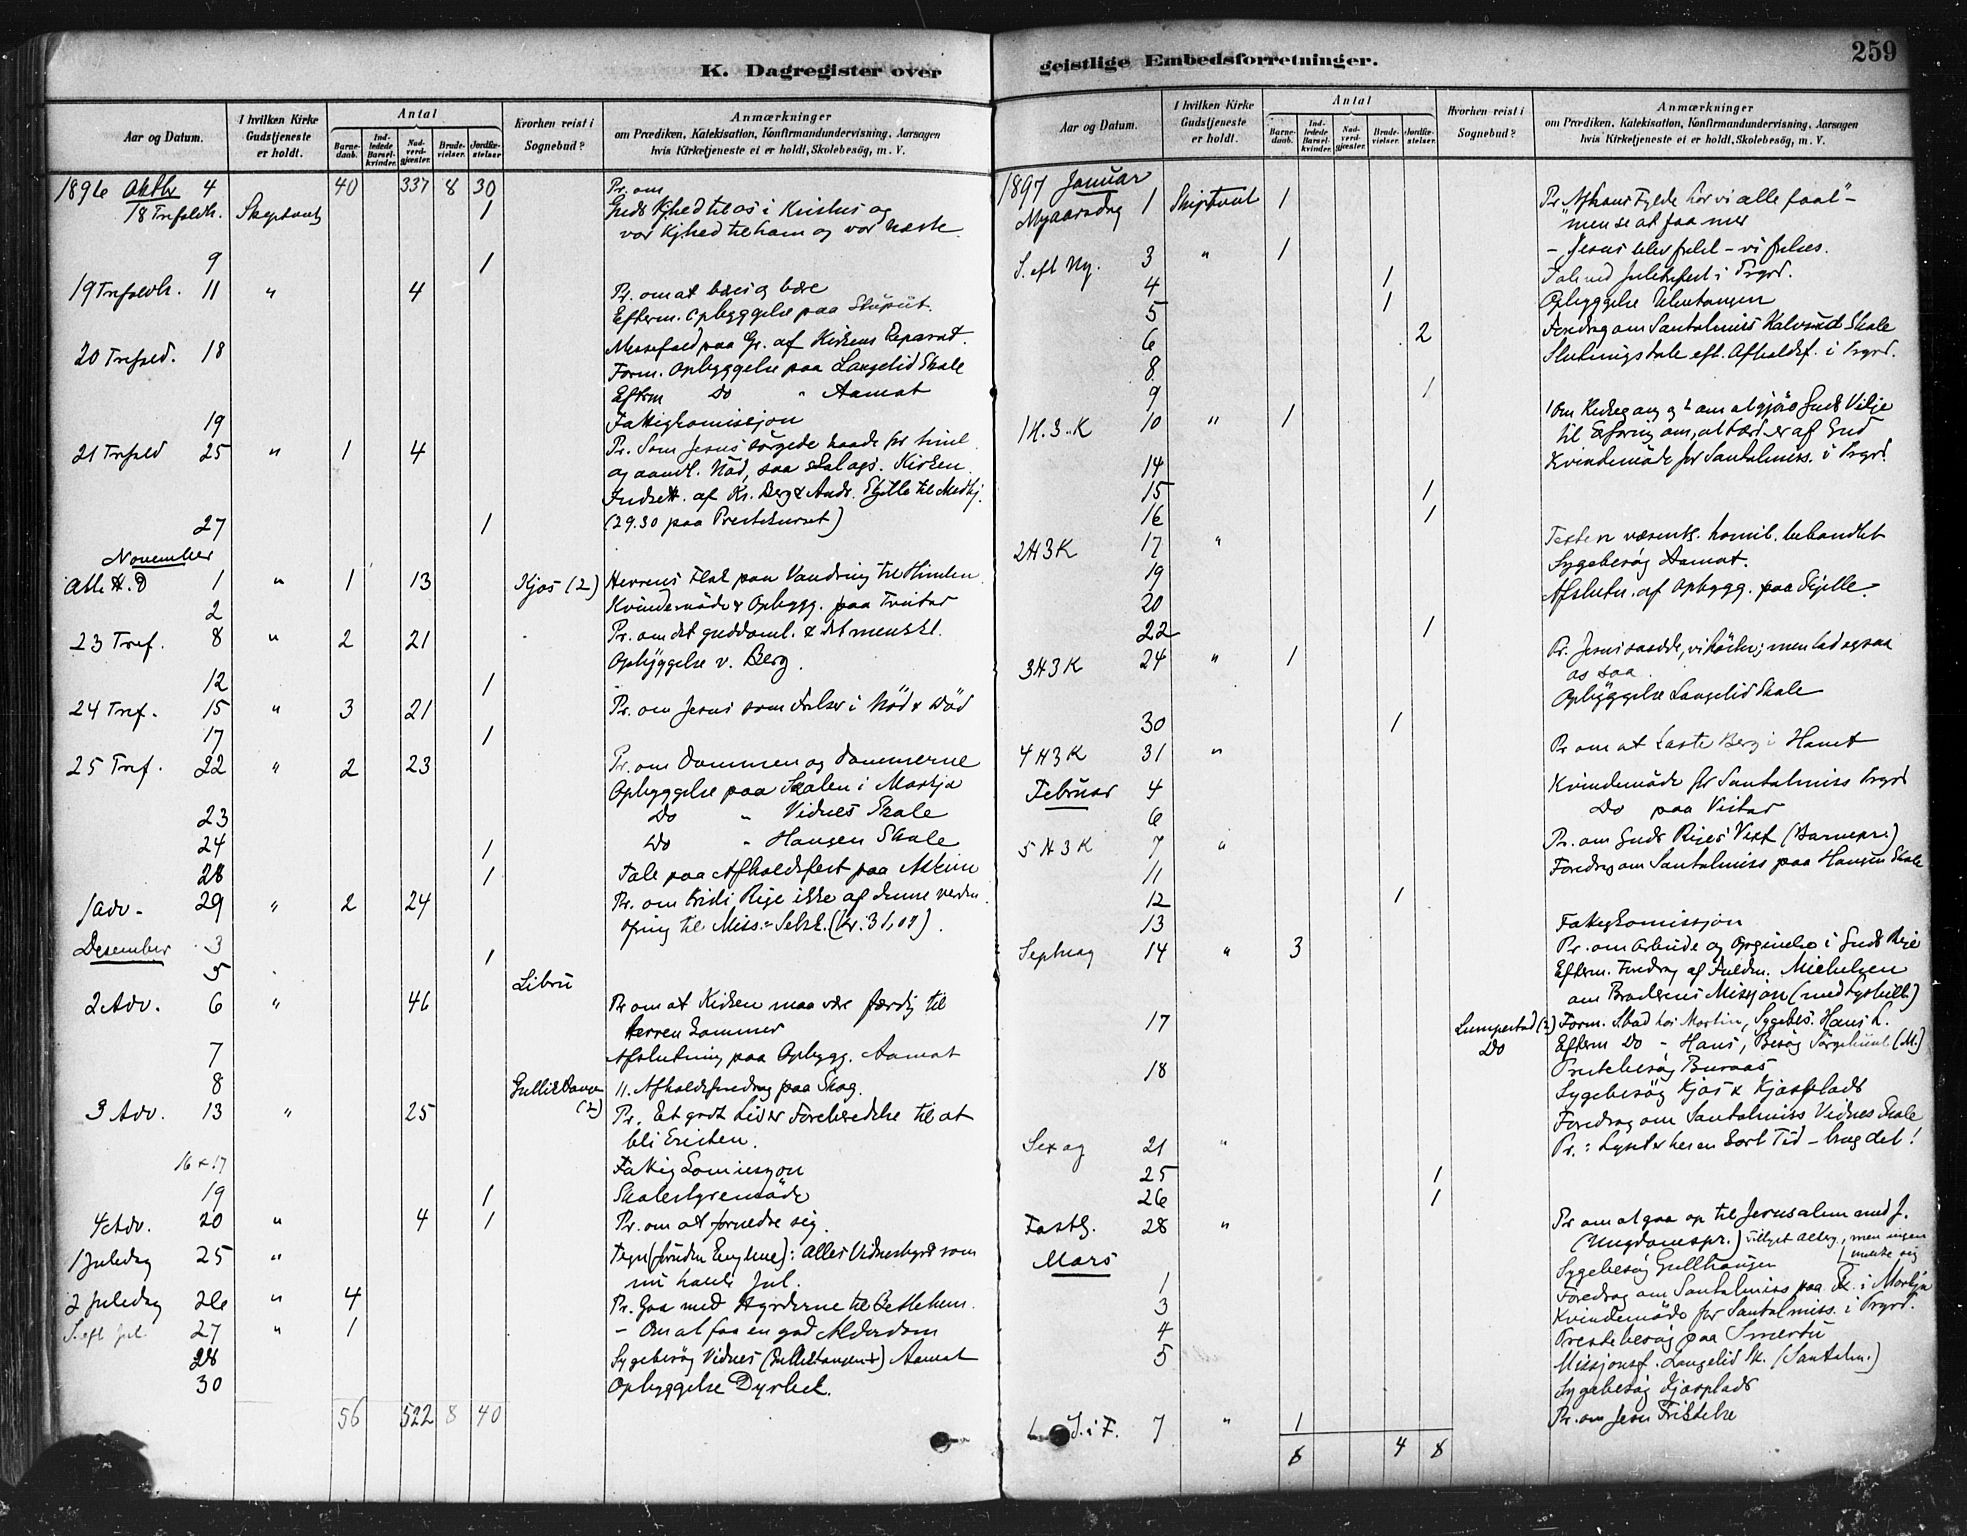 K. Dagregister over
Aar og Datum.
I hvilken Kirke Gudstjeneste er holdt.
Antal
Barnedaab.
Indledede Barselkvinder.
Nadverdgjæster.
Brudevielser.
Jordfæstelser
Hvorhen reist i Sognebud?
Anmærkninger
om Prædiken, Katekisation, Konfirmandundervisning, Aarsagen
hvis Kirketjeneste ei er holdt, Skolebesøg, m. V.
1896 Oktbr 4 40 337 8 30 Pr. om
18 Trefoldh. Skiptvet 1 Guds Kjhed til os i Kristus og
vor Kjhed til ham og vor Næste.
9 1
19 Trefoldh. 11 " 4 Pr. om at bæres og bære
Efterm. Opbyggelse paa
20 Trefold. 18 Messefald paa Gr. af Kirkens Reparat.
Form. Opbyggelse paa Langelid Skole
Efterm Do " Aamot
19 Fattigkomissjon
21 Trefold 25 " 1 4 Pr. Som Jesus sørgede baade for timel
og aandl. Nød, saa skal ogs. Kirken.
Indsett. af Kr. Berg & Andr. Skjelle til Medhj.
27 1 (29.30 paa Prestekurset)
November
Alle H. D 1 " 1 13 Kjos (2) Herrens Flok paa Vandring til Himlen
2 Kvindemøde & Opbygg. paa
23 Tref. 8 " 2 21 Pr. om det guddoml. & det menskl.
Opbyggelse v. Berg.
12 1
24 Tref. 15 " 3 21 Pr. om Jesus som Frelser i Nød & Død
17 1
25 Tref. 22 " 2 23 Pr. om Dommen og Dommerne
Opbyggelse paa Skolen i Mortja
23 Do " Vidnes Skole
24 1 Do " Haugen Skole
28 1 Tale paa Afholdsfest paa Askim
1 Adv. 29 " 2 24 Pr. om Kristi Rige ikke af denne verden.
Ofring til Miss.-Selsk. (kr. 31,07).
Desember 3 1
5 Libru
2 Adv. 6 " 46 Pr om at Kirken maa være færdig til
Herren kommer
7 Afslutning paa Opbygg. Aamot
8 Afholdsforedrag paa Skog.
3 Adv. 13 " (2) 25 Pr. Et godt Liv er Forberedelse til at
bli Kristen.
16 & 17 Fattigkomissjon
19 1 Skolestyremøde
4 Adv. 20 " 4 1 Pr. om at fornedre sig.
1 Juledag 25 " : Alles Vidnesbyrd som
nu Jul.
2 Juledag 26 " 4 Pr. Gaa med Hyrderne til Betlehem.
S. eft Jul. 27 " 1 - Om at faa en god Alderdom
28 Sygebesøg Vidnes Aamot
30 Opbyggelse Dyrbek.
56 522 8 40
geistlige Embedsforretninger.
259
Aar og Datum.
I hvilken Kirke Gudstjeneste er holdt.
Antal
Barnedaab.
Indledede Barselkvinder.
Nadverdgjæster.
Brudevielser.
Jordfæstelser
Hvorhen reist i Sognebud?
Anmærkninger
om Prædiken, Katekisation, Konfirmandundervisning, Aarsagen
hvis Kirketjeneste ei er holdt, Skolebesøg, m. V.
1897 Januar
Nyaarsdag 1 Skiptvet 1 Pr. Af hans Fylde har vi alle faat" -
men se at faa mer
S. eft Ny. 3 " 1 - Jesus blev fulgt - vi følges.
4 1 Tale ved Juletræfest i Prgrd.
5 1 Opbyggelse
6 2 Foredrag om Santalmiss Kalvsud Skole
8 Slutningstale eft. Afholdsf. i Prgrd.
9 1
1 H. 3. K 10 " 1 1 Om Kirkegang og 2 om at gjøre Guds Vilje
til Erfaring om, at Lærd. er af Gud
14 Kvindemøde for Santalmiss. i Prgrd.
15 1
16 1
2 H 3 K 17 " Texten væsentl. homil. behandlet
19 Sygebesøg Aamot.
20 Afslutn. af Opbygg. paa Skjelle.
22 1
3 H 3 K 24 " 1 Pr. Jesus saadde, vi høster; men lad ogsaa
os saa.
Opbyggelse Langelid Skole
30 1
4 H 3 K 31 " Pr om at kaste Berg i Havet
Februar 4 Kvindemøde for Santalmiss Prgrd
6 Do paa
5 H 3 K 7 " Pr. om Guds Riges Vext (Barnepr.)
11 Foredrag om Santalmiss paa Haugen Skole
12 1
13 Fattigkomissjon
Septuag 14 " 3 Pr. om Arbeide og i Guds Rige
Efterm. Foredrag af Michelsen
om Brødrenes Missjon (med Lysbill.)
17 Lumpestad (2) Form. Sbad hos Martin, Sygebes. Hans L.
Do Efterm Do - Hans, Besøg (M.)
18 Prestebesøg Buraas
Sygebesøg Kjos & Kjosplads
Foredrag om Santalmiss Vidnes Skole
Sexag 21 " Pr.: Lyset er her en kort Tid - brug det!
25 1
26 1
Fastl. 28 " Pr om at gaa op til Jerusalem med J.
(Ungdomspr.) men ingen
Mars Sygebesøg Gullhaugen
1 Foredrag om Santalmiss paa i Mortja
3 Kvindemøde for Santalmiss. i Prgrd.
4 Prestebesøg paa
5 Missjonsf. Langelid Sk. (Santalm.)
Sygebesøg Kjosplads
1 S. i F. 7 " 1 Pr. om Jesu Fristelse
8 4 8